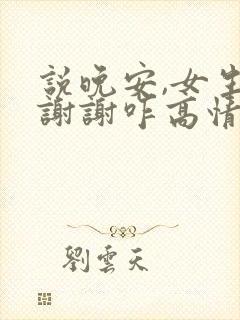 説晚安,女生
謝謝咋高情
劉雲天